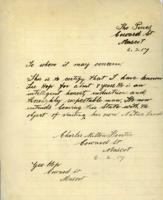 The Pines
Coward St
Mascot
6.2.17
To whom it may concern
This is to certify that I have known
Gee Hop for about 8 years He is an
intelligent honest industrious and
thoroughly respectable man, He now
intends leaving this State with the
object of visiting his own Native Land
Charles Milton
Mascot
6.2.17
Gee Hop
Coward St
Mascot